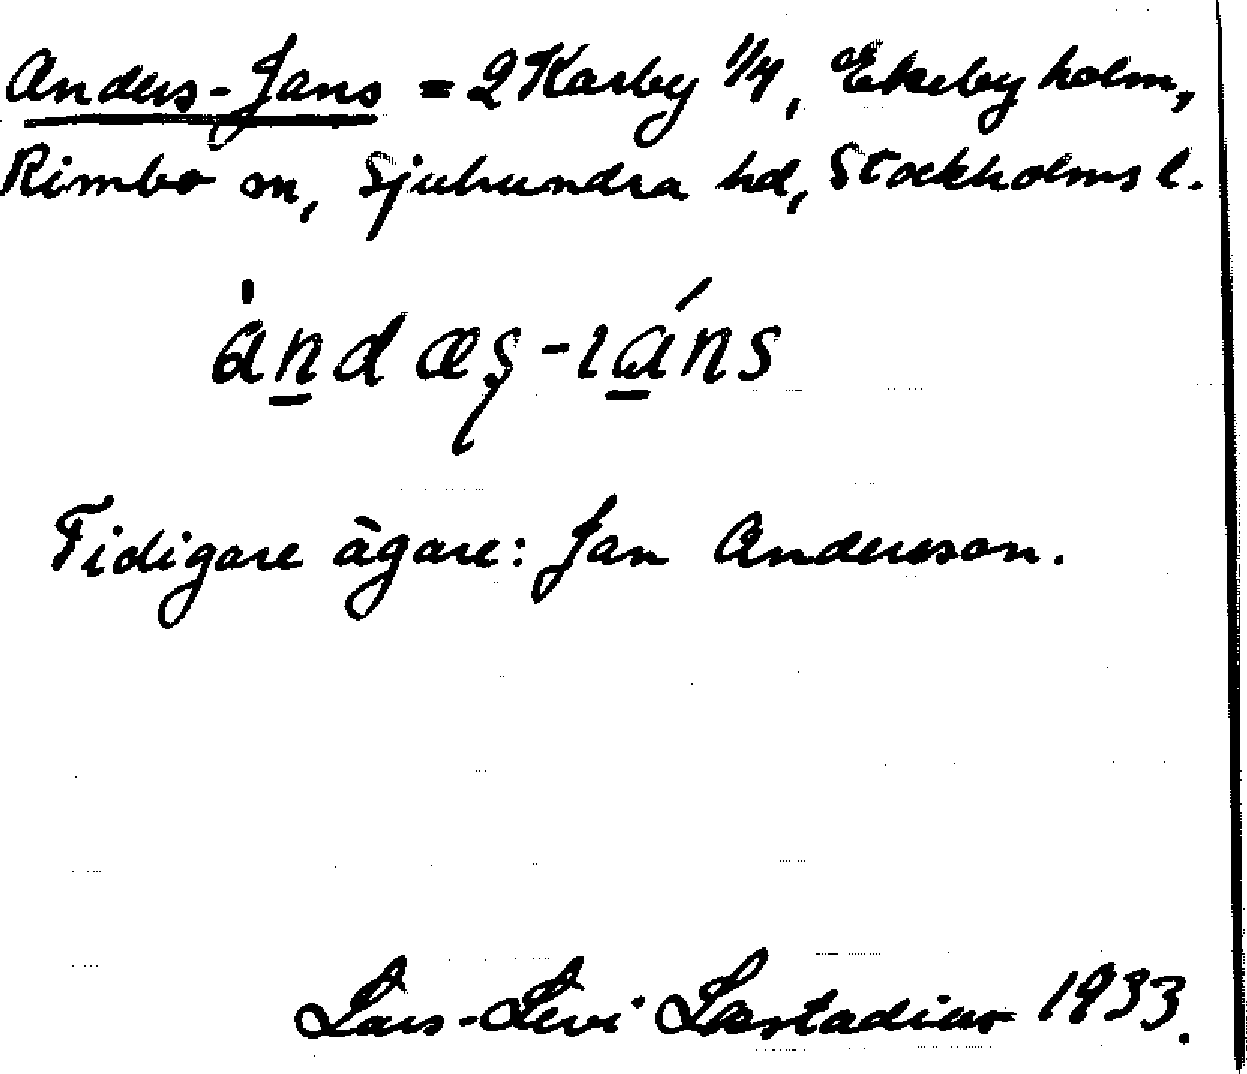 Anders-Jans = 2 Karby 1/4, Ekeby holm,
Rimbo sn, Sjuhundra hd, Stockholms l.
àndæs̩-ıáns
Tidigare ägare: Jan Andersson.
Lars-Levi Læstadius 1933.